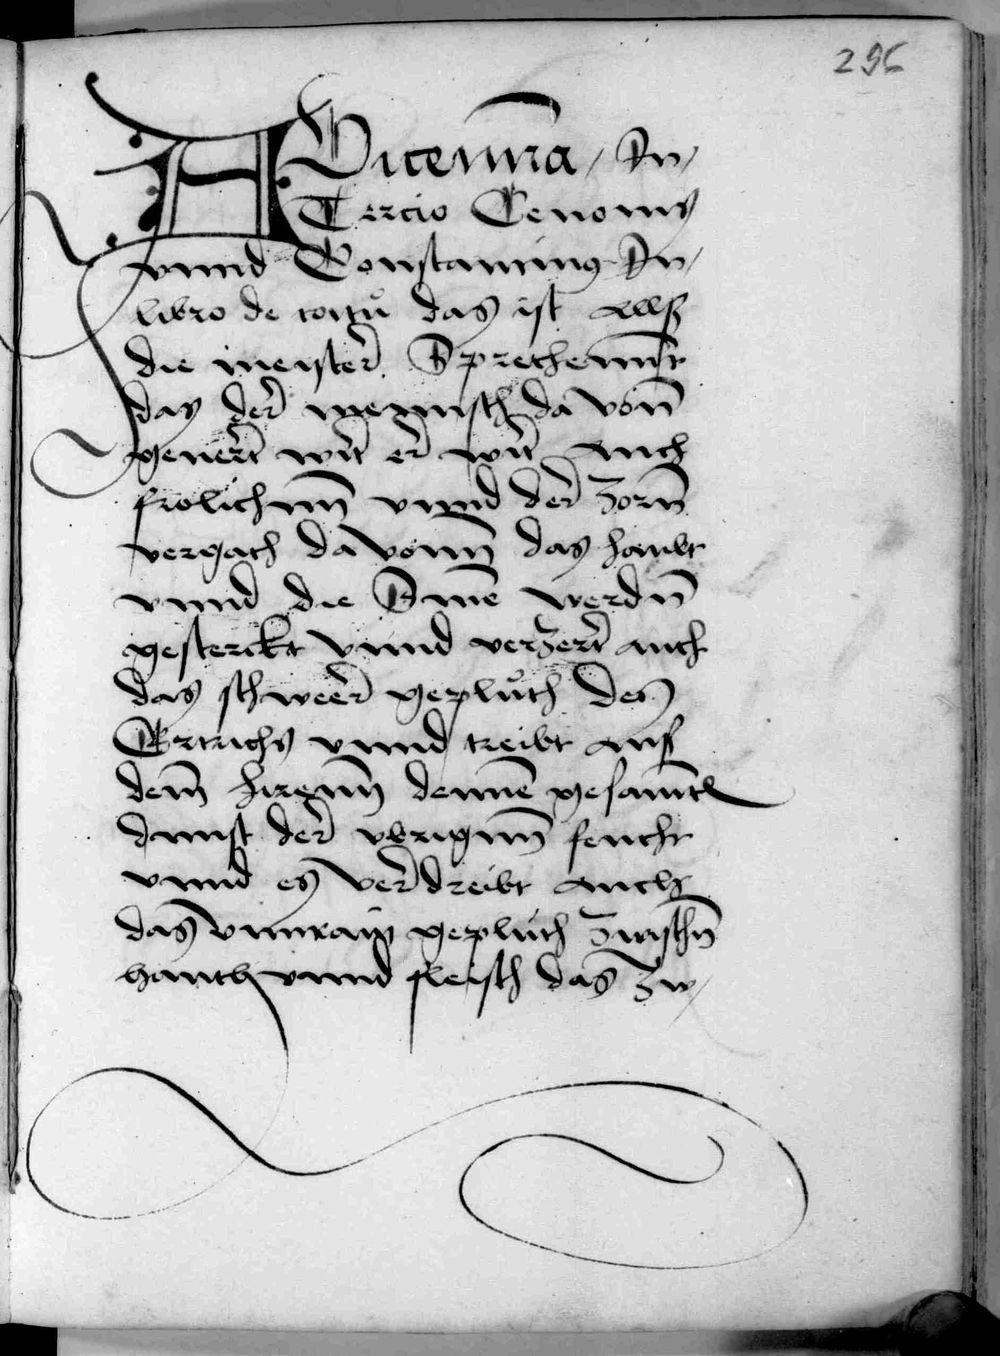 296
AVicenna / In /
Tercio Canonis
vnnd Constantinus In /
libro de coitu das ist Alls
die meister Sprechennt
das der mennsch da von
genert wirt er wirt auch
frolichenn vnnd der zorn
vergach da vonn das haubt
vnnd die Sinne werdn
gesterckt vnnd verzert auch
das schweer geplüth des
Ertrichs vnnd treibt auss
dem hirenn denne gesamel
dunst der vbrigenn feucht
vnnd es verdreibt auch
das vnnrain geplüth zwischn
hauth vnnd fleisch das zw /